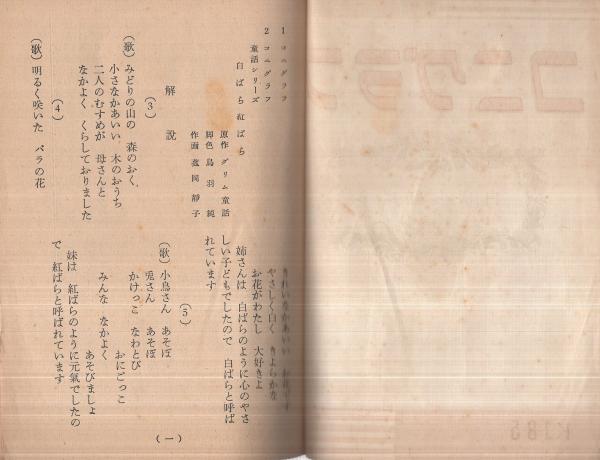 1 コニグラフ
2 コニグラフ
童話シリーズ
白ばら紅ばら
原作 グリム童話
脚色 鳥羽純
作画 蓋岡靜子
解説
(3)
(歌) みどりの山の 森のおく、
小さなかあいい 木のおうち
二人のむすめが 母さんと
なかよく くらしておりました
(4)
(歌) 明るく咲いた バラの花
きれいなかあいい お花です
やさしく白く きよらかな
お花がわたし 大好きよ
姉さんは 白ばらのように心のやさ
しい子どもでしたので 白ばらと呼ば
れています
(5)
(歌) 小鳥さん あそぼ
兎さん あそぼ
かけっこ なわとび
おにごっこ
みんな なかよく
あそびましょ
妹は 紅ばらのように元氣でしたの
で 紅ばらと呼ばれています
(一)
コニグラフ
K185